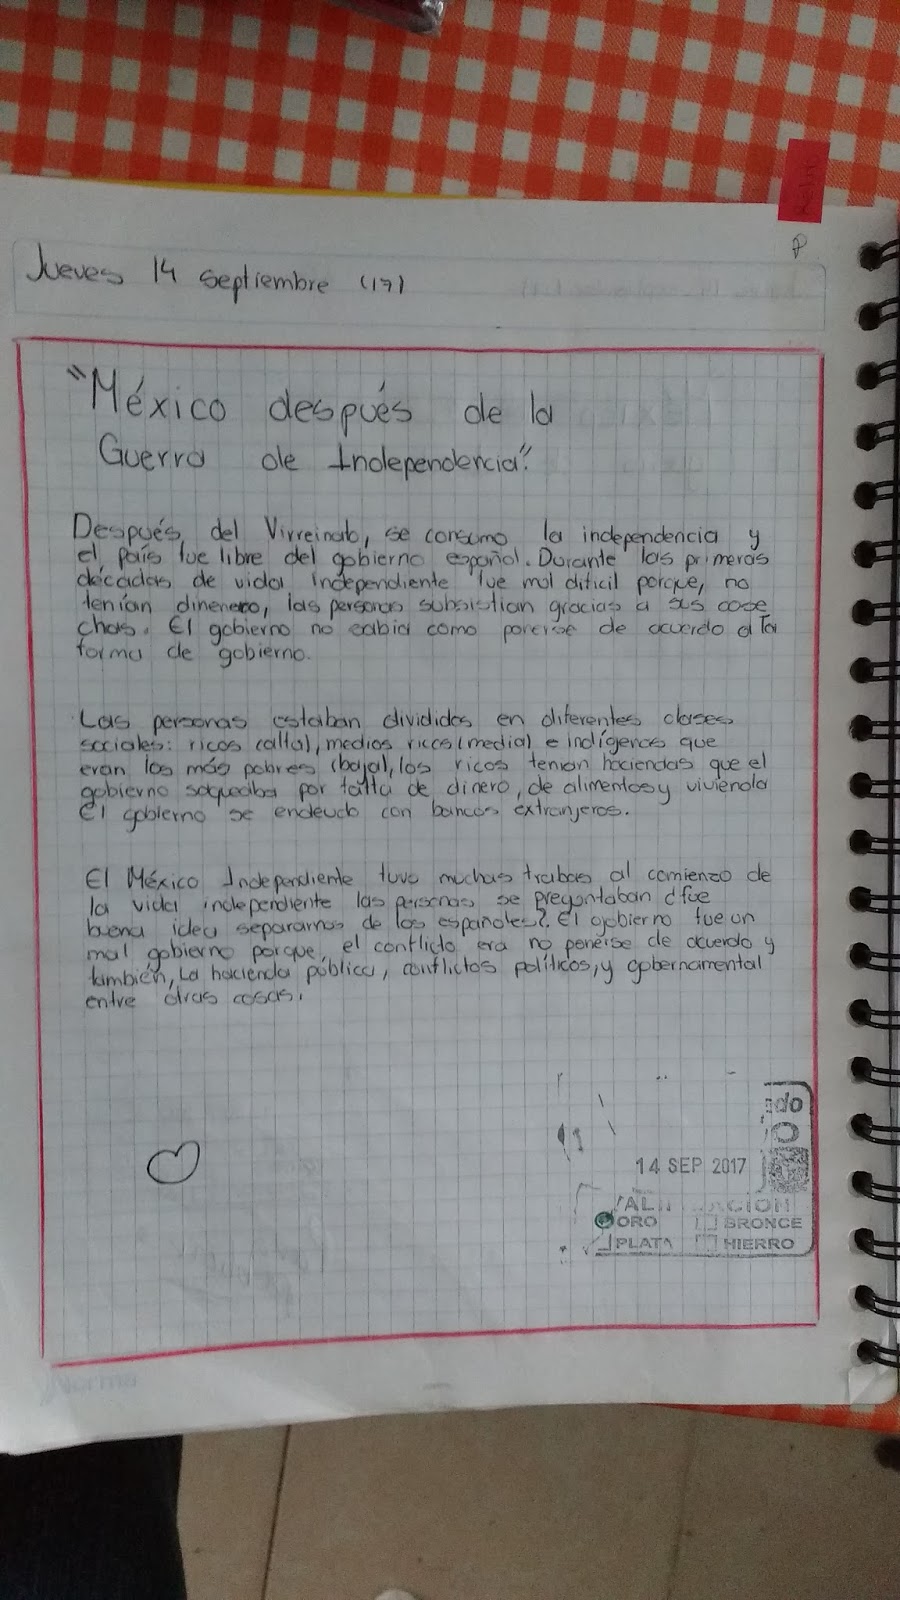 Jueves 14 septiembre (17)
"México después de la
Guerra de Independencia".
Después, del Virreinato, se consumo la independencia y
el país fue libre del gobierno español. Durante las primeras
décadas de vida Independiente fue mol dificil porque, no
tenían dinenero, las personas subsistian gracias a sus cose
chas. El gobierno no sabia como ponerse de acuerdo a la
forma de gobierno.
Las personas estaban divididos en diferentes clases
sociales: ricos (alta), medios ricos (media) e indígenas que
eran los más pobres (baja), los ricos tenian haciendas que el
gobierno saqueaba por falta de dinero, de alimentos y vivienda
El gobierno se endeudo con bancos extranjeros.
El México Independiente tuvo muchas trabas al comienzo de
la vida independiente las personas se pregontaban ¿fue
buena idea separarnos de los españoles? El gobierno fue un
mal gobierno porque, el conflicto era no penerse de acuerdo y
también, La hacienda pública, conflictos políticos, y gobernamental
entre otras cosas.
14 SEP 2017
ORO BRONCE
PLATA HIERRO